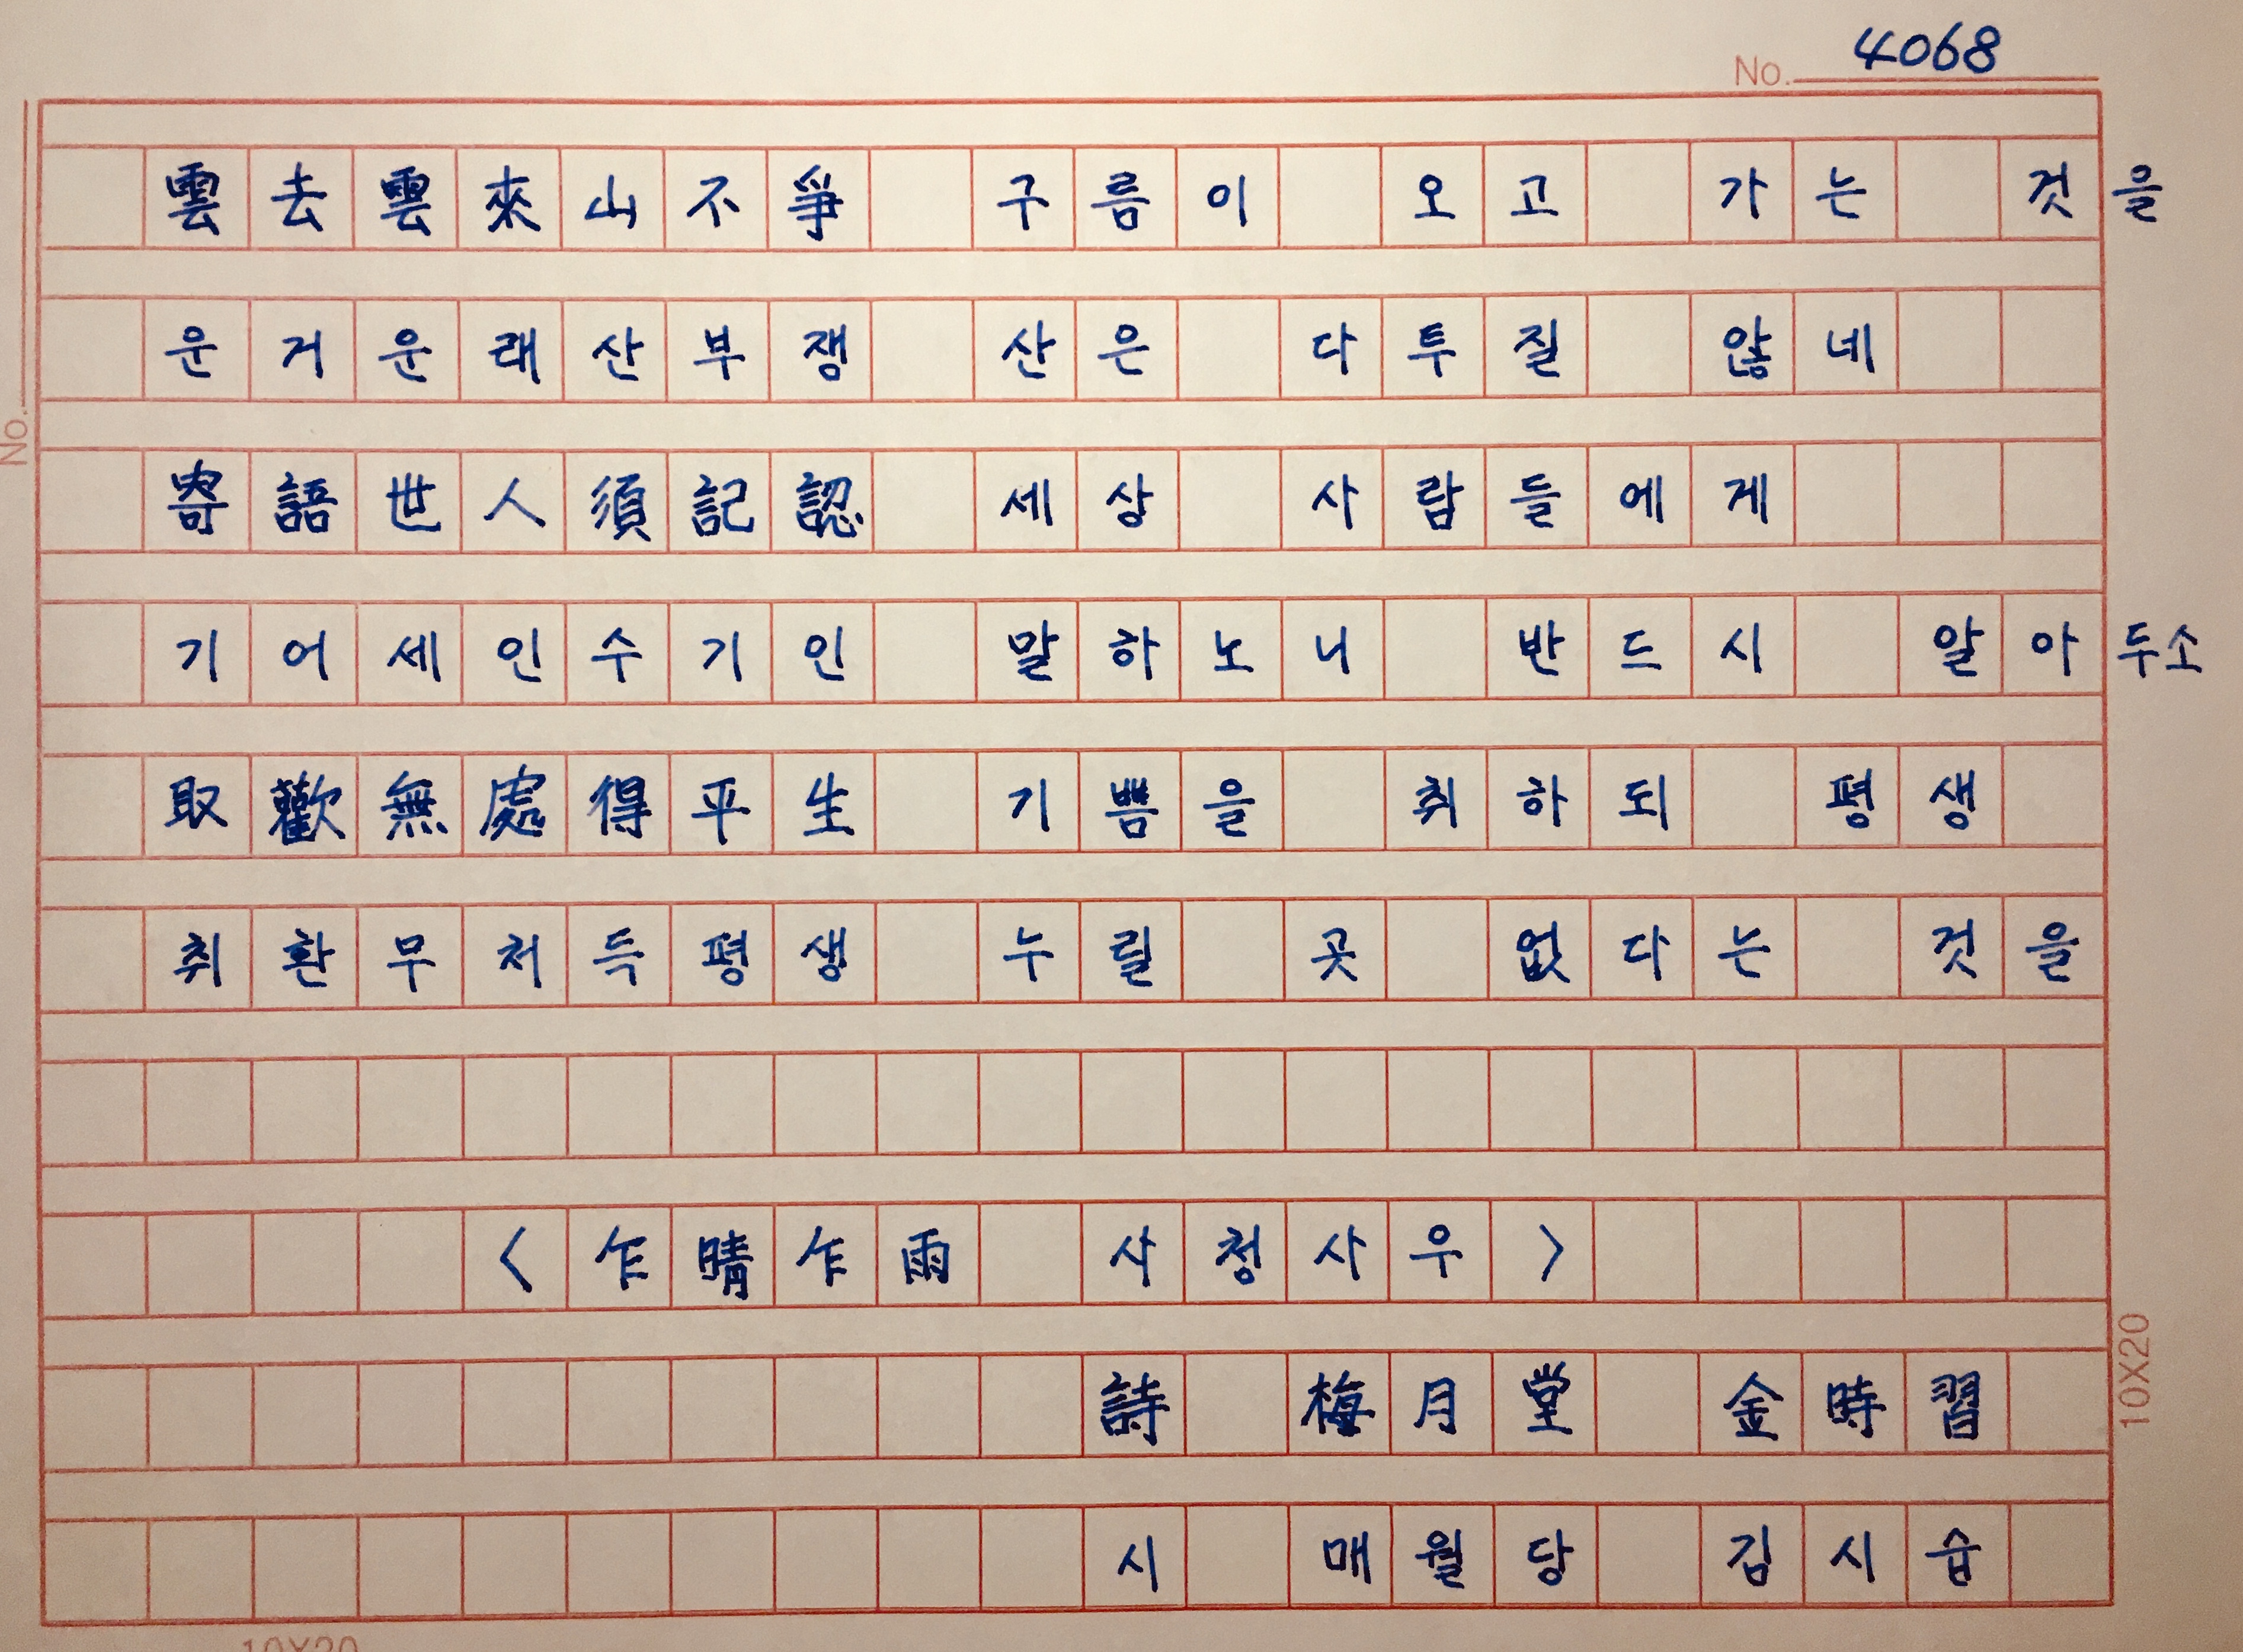 No. 4068
雲去雲來山不爭 구름이 오고 가는 것을
운거운래산부쟁 산은 다투질 않네
No.
寄語世人須記認 세상 사람들에게
기어세인수기인 말하노니 반드시 알아두소
取歡無處得平生 기쁨을 취하되 평생
취환무처득평생 누릴 곳 없다는 것을
<乍晴乍雨 사청사우>
詩 梅月堂 金時習
10X20
시 매월당 김시습
10X20